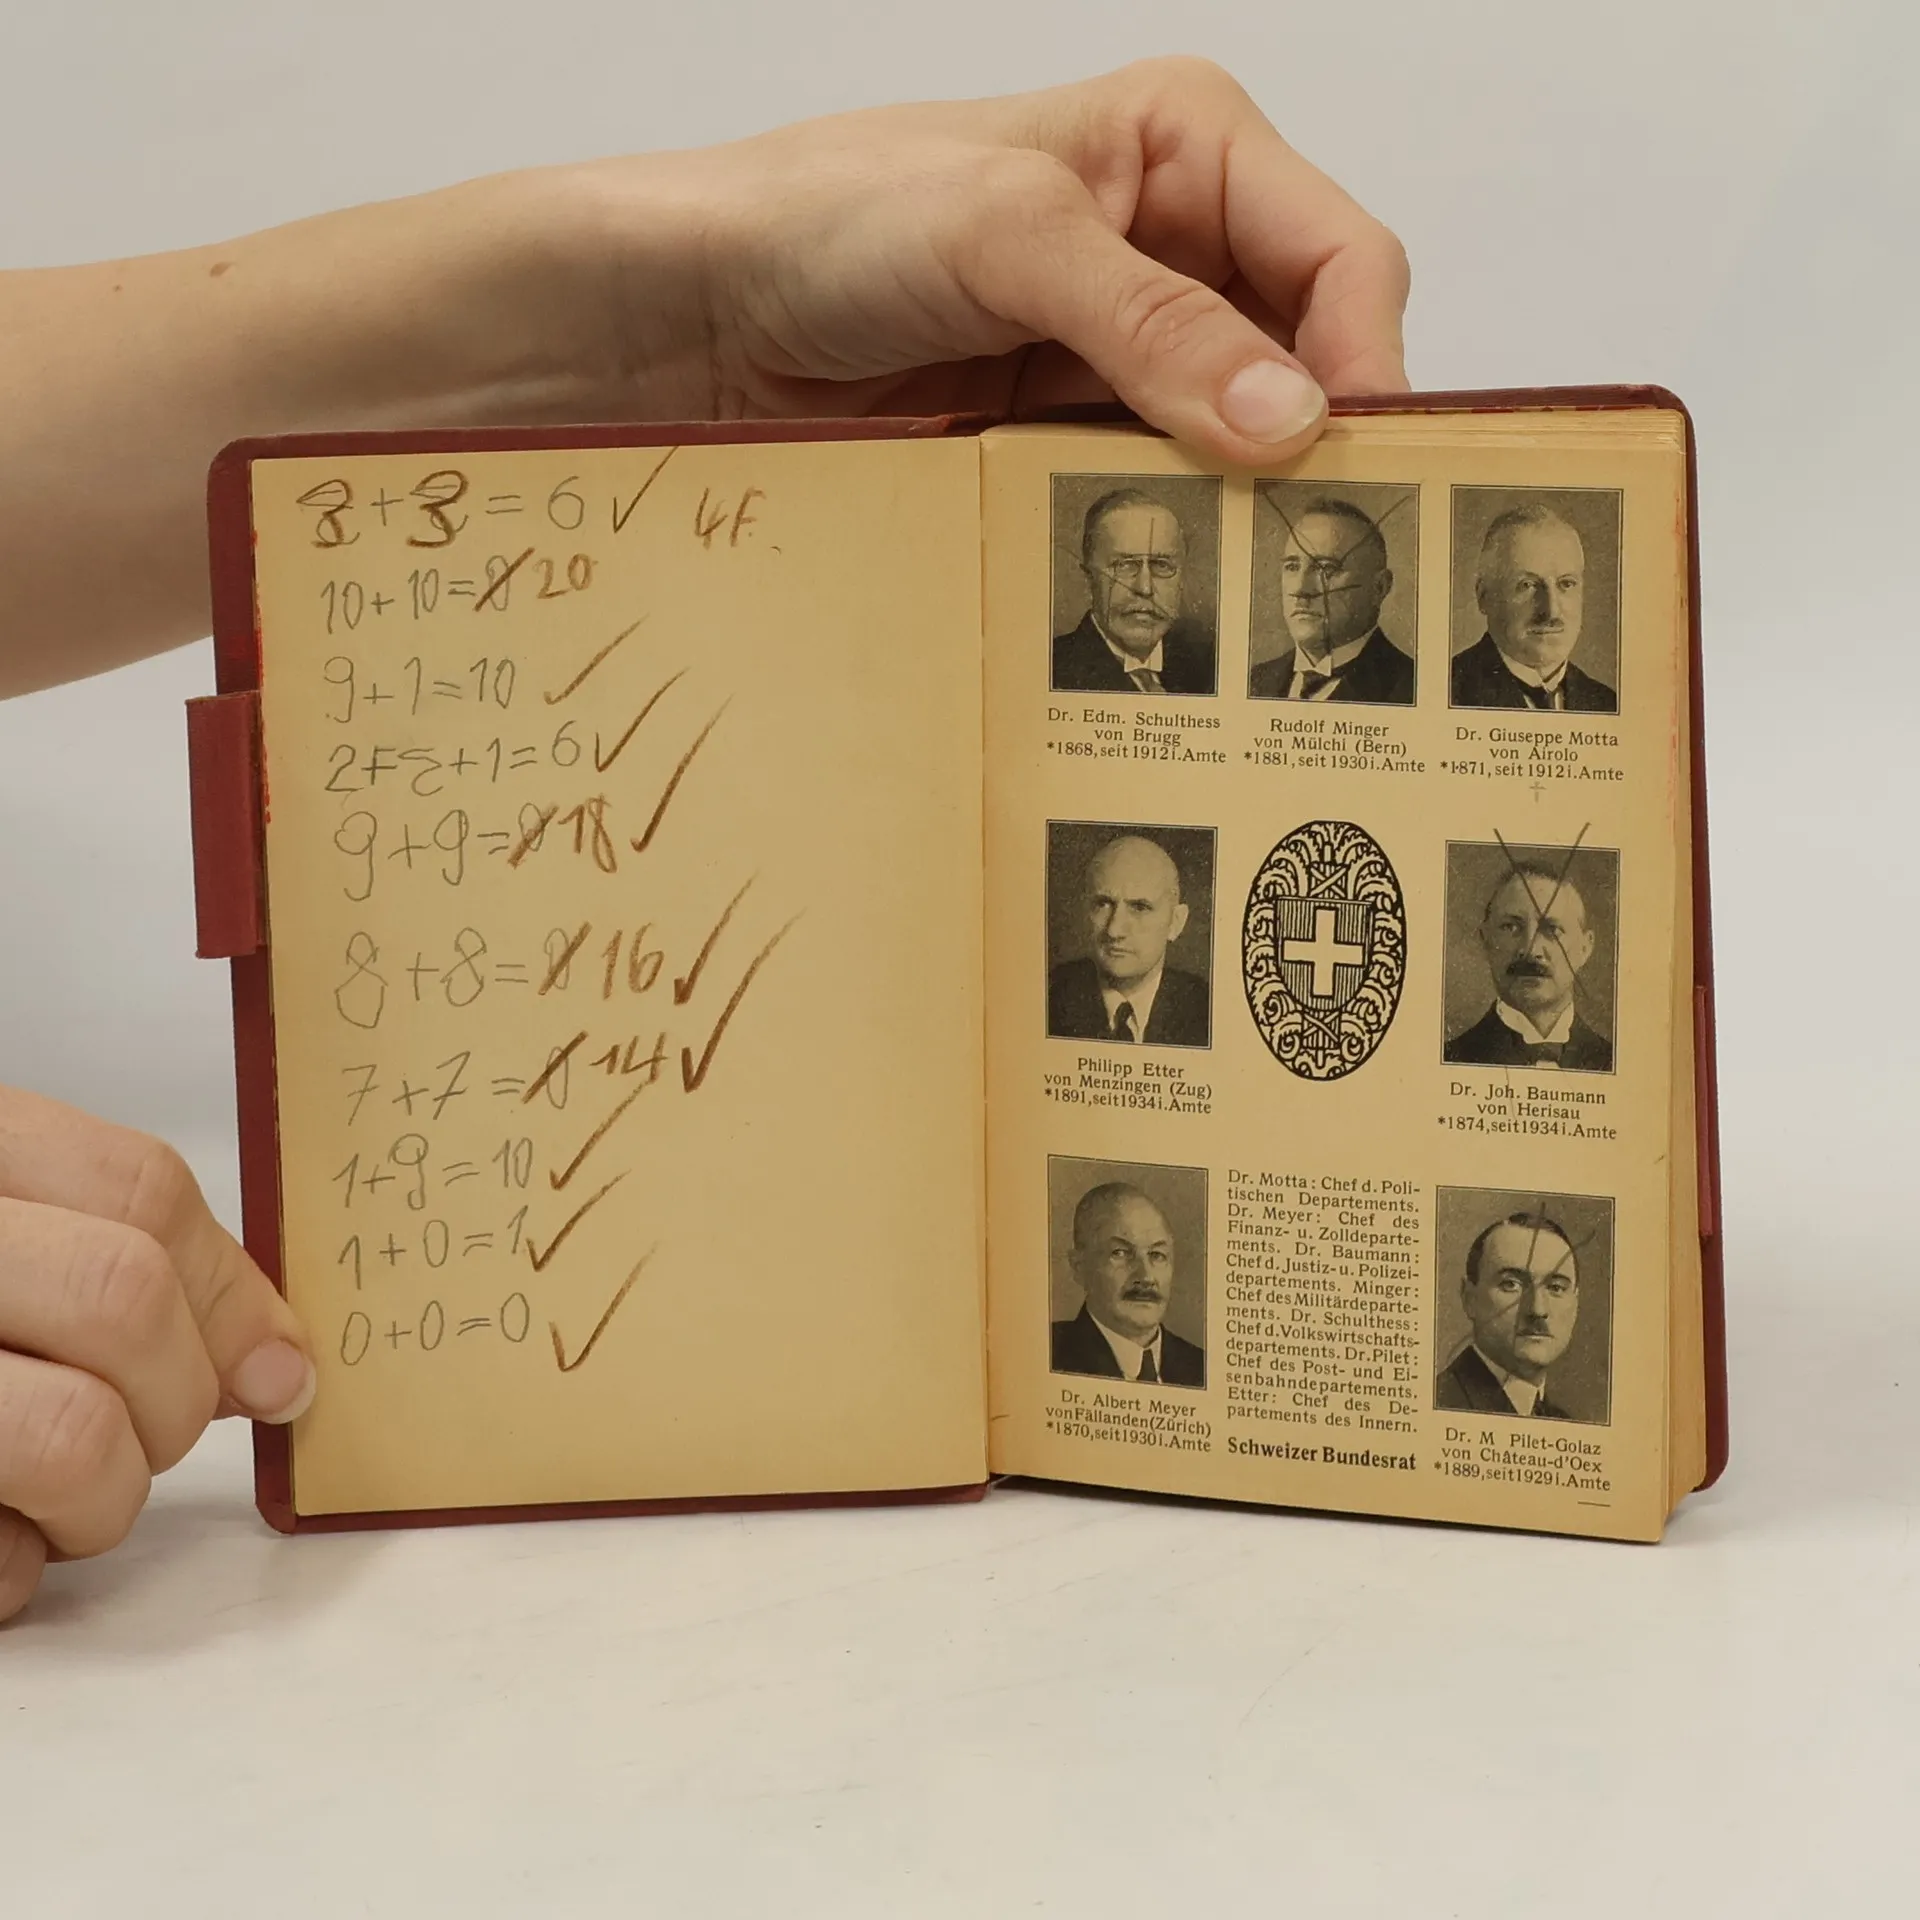 3 + 3 = 6 ✓ 4F.
10 + 10 = 0 20
9 + 1 = 10 ✓
2 + 3 + 1 = 6 ✓
9 + 9 = 0 18 ✓
8 + 8 = 0 16 ✓
7 + 7 = 0 14 ✓
1 + 9 = 10 ✓
1 + 0 = 1 ✓
0 + 0 = 0 ✓
Dr. Edm. Schulthess
von Brugg
*1868, seit 1912 i. Amte
Rudolf Minger
von Mülchi (Bern)
*1881, seit 1930 i. Amte
Dr. Giuseppe Motta
von Airolo
*1871, seit 1912 i. Amte
†
Philipp Etter
von Menzingen (Zug)
*1891, seit 1934 i. Amte
Dr. Joh. Baumann
von Herisau
*1874, seit 1934 i. Amte
Dr. Albert Meyer
von Fällanden (Zürich)
*1870, seit 1930 i. Amte
Dr. Motta: Chef d. Poli-
tischen Departements.
Dr. Meyer: Chef des
Finanz- u. Zolldeparte-
ments. Dr. Baumann:
Chef d. Justiz- u. Polizei-
departements. Minger:
Chef des Militärdeparte-
ments. Dr. Schulthess:
Chef d. Volkswirtschafts-
departements. Dr. Pilet:
Chef des Post- und Ei-
senbahndepartements.
Etter: Chef des De-
partements des Innern.
Schweizer Bundesrat
Dr. M Pilet-Golaz
von Château-d'Oex
*1889, seit 1929 i. Amte